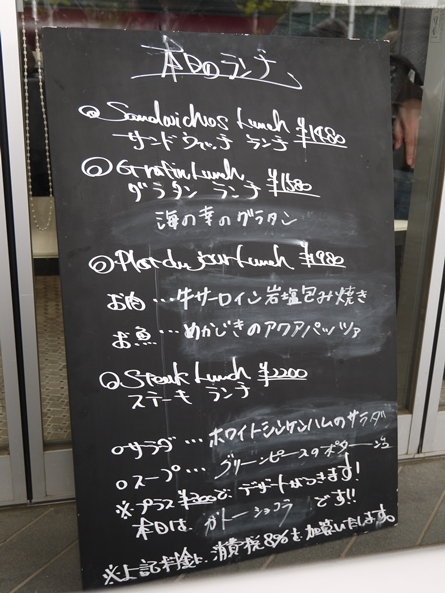 本日のランチ
Sandwiches Lunch
サンドウィッチ ランチ
Gratin Lunch ¥1580
グラタン ランチ
海の幸のグラタン
Plat du jour Lunch ¥1980
お肉…牛サーロイン岩塩包み焼き
お魚…めかじきのアクアパッツァ
Steak Lunch ¥2200
ステーキ ランチ
○サラダ…ホワイトシンケンハムのサラダ
○スープ…グリーンピースのポタージュ
※プラス¥300で、デザートがつきます!
本日は、ガトーショコラ です!!
※上記料金に消費税8%を加算いたします。